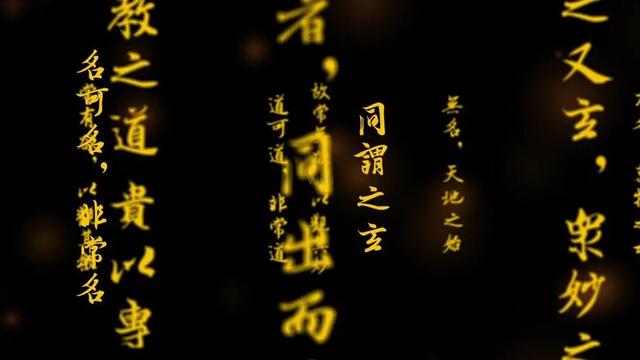 之又玄，衆妙之
無名，天地之始
同謂之玄
者，同出而
道可道 非常道
教之道 貴以專
名可名，非常名